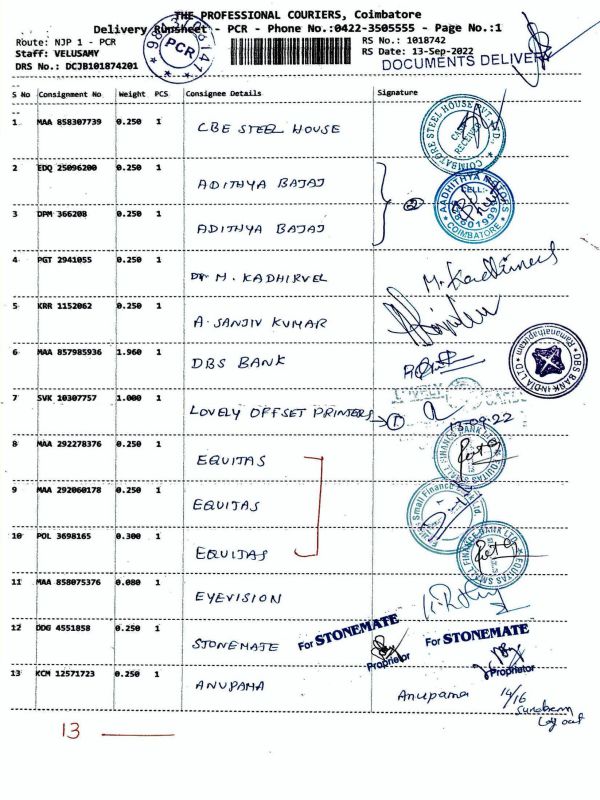 THE PROFESSIONAL COURIERS, Coimbatore
Delivery Runsheet - PCR - Phone No.:0422-3505555 - Page No.:1
Route: NJP 1 - PCR
RS No.: 1018742
Staff: VELUSAMY
RS Date: 13-Sep-2022
DRS No.: DCJB101874201
DOCUMENTS DELIVERY
PCR
S No Consignment No Weight PCS Consignee Details Signature
1 MAA 858307739 0.250 1 CBE STEEL HOUSE
COIMBATORE STEEL HOUSE PVT. LTD.
2 EDQ 25096200 0.250 1 ADITHYA BAJAJ
AADHITHYA MOTORS
CELL:-
COIMBATORE
3 DPM 366208 0.250 1 ADITHYA BAJAJ
4 PGT 2941055 0.250 1 Dr M. KADHIRVEL
5 KRR 1152062 0.250 1 A. SANJIV KUMAR
6 MAA 857985936 1.960 1 DBS BANK
DBS BANK INDIA LTD
Ramanathapuram
7 SVK 10307757 1.000 1 LOVELY OFFSET PRINTERS → 1
13-09-22
8 MAA 292278376 0.250 1 EQUITAS
EQUITAS SMALL FINANCE BANK LTD
9 MAA 292060178 0.250 1 EQUITAS
Small Finance
10 POL 3698165 0.300 1 EQUITAS
EQUITAS SMALL FINANCE BANK LTD
11 MAA 858075376 0.080 1 EYEVISION
12 DDG 4551858 0.250 1 STONEMATE
For STONEMATE
Proprietor
For STONEMATE
Proprietor
13 KCM 12571723 0.250 1 ANUPAMA
Anupama
14/16
Sundaram
Lay out
13